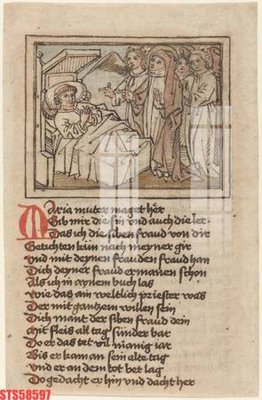 Maria muter maget her
Gib mir die sin und auch die ler
Das ich die siben fraud von dir
Getichten kün nach meyner gir
Und mit deinen frauden fraud han
Dich deyner fraud ermanen schon
Als ich in aynem buch las
Wie das ain weltlich priester was
Der mit gantzem willen sein
Dich mant der siben fraud dein
Mit fleis all tag sunder bar
Er das tet vil manig iar
Bis er kam an sein alte tag
Und er an dem dot bet lag
Do gedacht er hin und dacht her
STS58597